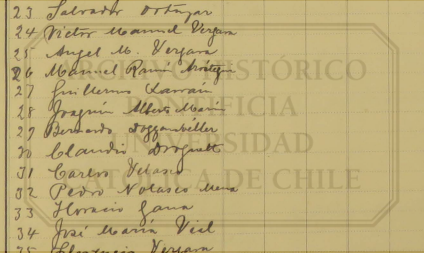 23 Salvador Ortúzar
24 Victor Manuel Vergara
25 Angel M. Vergara
26 Manuel Ramón Aróstegui
27 Guillermo Larraín
28 Joaquín Alberto Marín
29 Bernardo
30 Claudio Droguett
31 Carlos Velasco
32 Pedro Nolasco Mena
33 Horacio Gana
34 José María Vial
35 Vergara
ARCHIVO HISTÓRICO
PONTIFICIA
UNIVERSIDAD
CATÓLICA DE CHILE